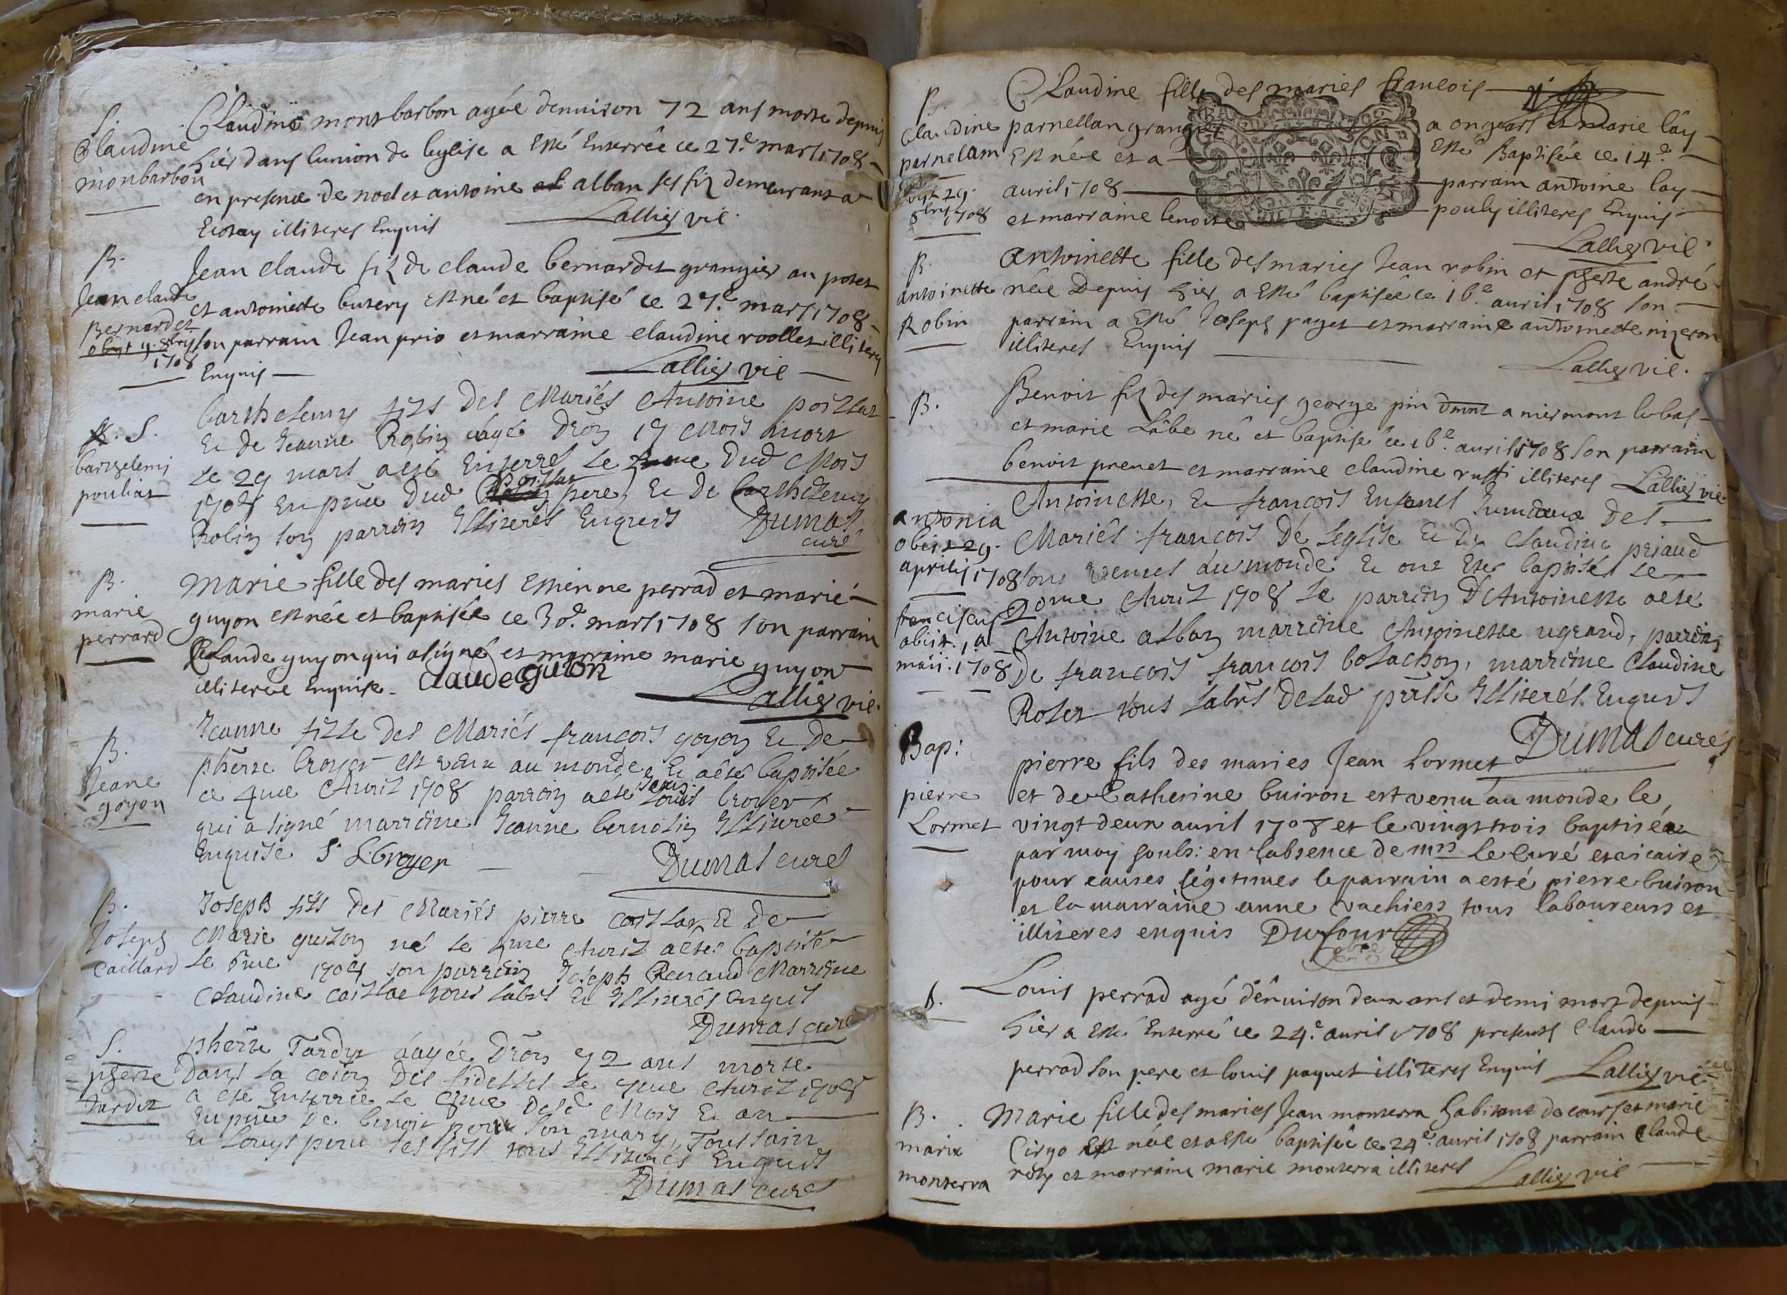 S.
Claudine
monbarbon
Claudine montbarbon agée denuiron 72 ans morte depuis
hier dans lunion de leglise a esté Enterrée ce 27e mars 1708
en presence de noel et antoine alban ses fiz demeurant a
illiteres Enquis Lallies vic.
B.
Jean claude
Bernardet
obiit 9. 8bris
1708
Jean claude fiz de claude bernardet grangier au potet
et antoinette butery est né et baptisé ce 27e mars 1708
son parrain Jean prio et marraine claudine roollet illiteres
Enquis Lallies vic
S.
barthelemi
pouliat
barthelemy fils des Mariés Antoine
Et de Jeanne Robin agé Dron 19 Mois mort
Le 29 mars a esté Enterré Le dud Mois
1708 En pnce dud pere, Et de barthelemy
Robin son parrain Illiterés Enquis Dumas
curé
B.
marie
perrard
Marie fille des maries Estienne perrad et marie
guyon est née et baptisée ce 30e mars 1708 son parrain
Claude guyon qui a signé et marraine marie guyon
illiterée Enquise. claude guion
Lallies vic.
B.
Jeane
goyon
Jeanne fille des Mariés francois goyon Et de
pherne broyer est venu au monde Et a été baptisée
ce 4me Avril 1708 parrain a esté broyer
qui a signé marraine Jeanne bernolin Illiterée
Enquise S Lbroyer Dumas curé
B.
Joseph
Caillard
Joseph fils des Mariés pierre Et de
Marie guiton né le me Avril a esté baptisé
Le me 1708 son parrain Joseph Renaud Marraine
Claudine tous Labrs Et Illiterés enquis
Dumas curé
S.
pherne
Tardit
pherne Tardit agée Dron 52 ans morte
Dans La coion Des fidelles Le me Avril 1708
a esté Enterrée Le me Desd Mois Et an
En pnce De benoit son mary, Toussain
Et Louys ses fils tous Illiterés Enquis
Dumas curé
B.
claudine
parnelam
obyt 29.
8bris 1708
Claudine fille des maries francois
parnellan grangier a ongeart et marie lay
Est née et a Esté Baptisée ce 14e
auril 1708 parrain antoine lay
et marraine benoite pouly illiteres Enquis
Lallies vic.
B.
antoinette
Robin
Antoinette fille des maries Jean robin et pherne andré
née Depuis hier a Esté baptisée ce 16e auril 1708 son
parrain a Esté Joseph paget et marraine antoinette
illiteres Enquis Lallies vic.
B.
Benoit fiz des maries george pin a miremont le bas
et marie Labe né et baptisé ce 16e auril 1708 son parrain
benoit prenet et marraine claudine ruffi illiteres Lallies vic
antonia
obiit 29.
aprilis 1708
franciscus
obiit 1a
maii. 1708
Antoinette, Et francois Enfants Jumeaux Des
Mariés francois De Leglise Et De Claudine
sont venus au monde Et ont Esté baptisés Le
20me Avril 1708 Le parrain D'Antoinette a esté
Antoine alban marraine Antoinette ugeaud, parrain
De francois francois bolachon, marraine Claudine
Rolet tous Labrs De lad prsse Illiterés Enquis
Dumas curé
Bap:
pierre
Lormet
pierre fils des maries Jean Lormet
et de Catherine buiron est venu au monde le
vingt deux auril 1708 et le vingt trois baptisé
par moy souls: en l'absence de mrs le curé et vicaire
pour causes légitimes le parrain a esté pierre buiron
et la marraine anne vachiers tous laboureurs et
illiteres enquis Dufour
S.
Louis perrad agé denuiron deux ans et demi mort depuis
hier a Esté Enterré ce 24e auril 1708 presents Claude
perrad son pere et louis paquet illiteres Enquis Lallies vic
B.
marie
monterra
Marie fille des maries Jean monterra habitant de cours et marie
Cirgo est née et a esté baptisée ce 24e auril 1708 parrain Claude
rety et marraine marie monterra illiteres Lallies vic